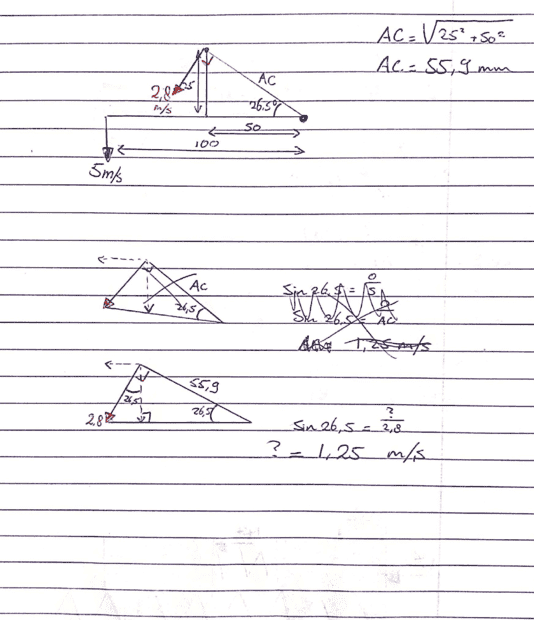 AC = √25² + 50²
AC = 55,9 mm
AC
2,8 m/s
25
26.5°
50
100
5 m/s
AC
26,5
Sin 26.5 =
Sin 26.5 = AC
1,25 m/s
55,9
26,5
26,5
2,8
sin 26,5 = ?/2,8
? = 1,25 m/s